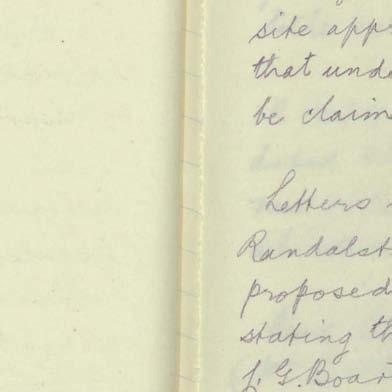 site app
that unde
be claim
Letters
Randalst
proposed
stating th
L. G. Boar